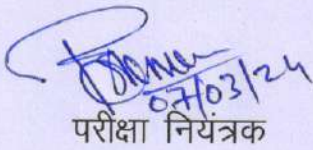 07/03/24
परीक्षा नियंत्रक